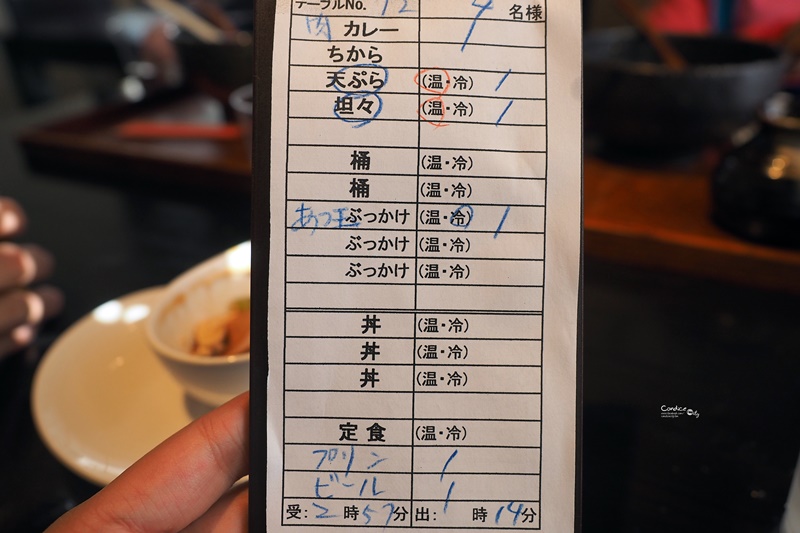 テーブルNo. 12 4 名様
肉 カレー 1
ちから
天ぷら (温・冷) 1
坦々 (温・冷) 1
桶 (温・冷)
桶 (温・冷)
あつ玉 ぶっかけ (温・冷) 1
ぶっかけ (温・冷)
ぶっかけ (温・冷)
丼 (温・冷)
丼 (温・冷)
丼 (温・冷)
定食 (温・冷)
プリン 1
ビール 1
受: 2 時 57 分 出: 時 14 分
Candice